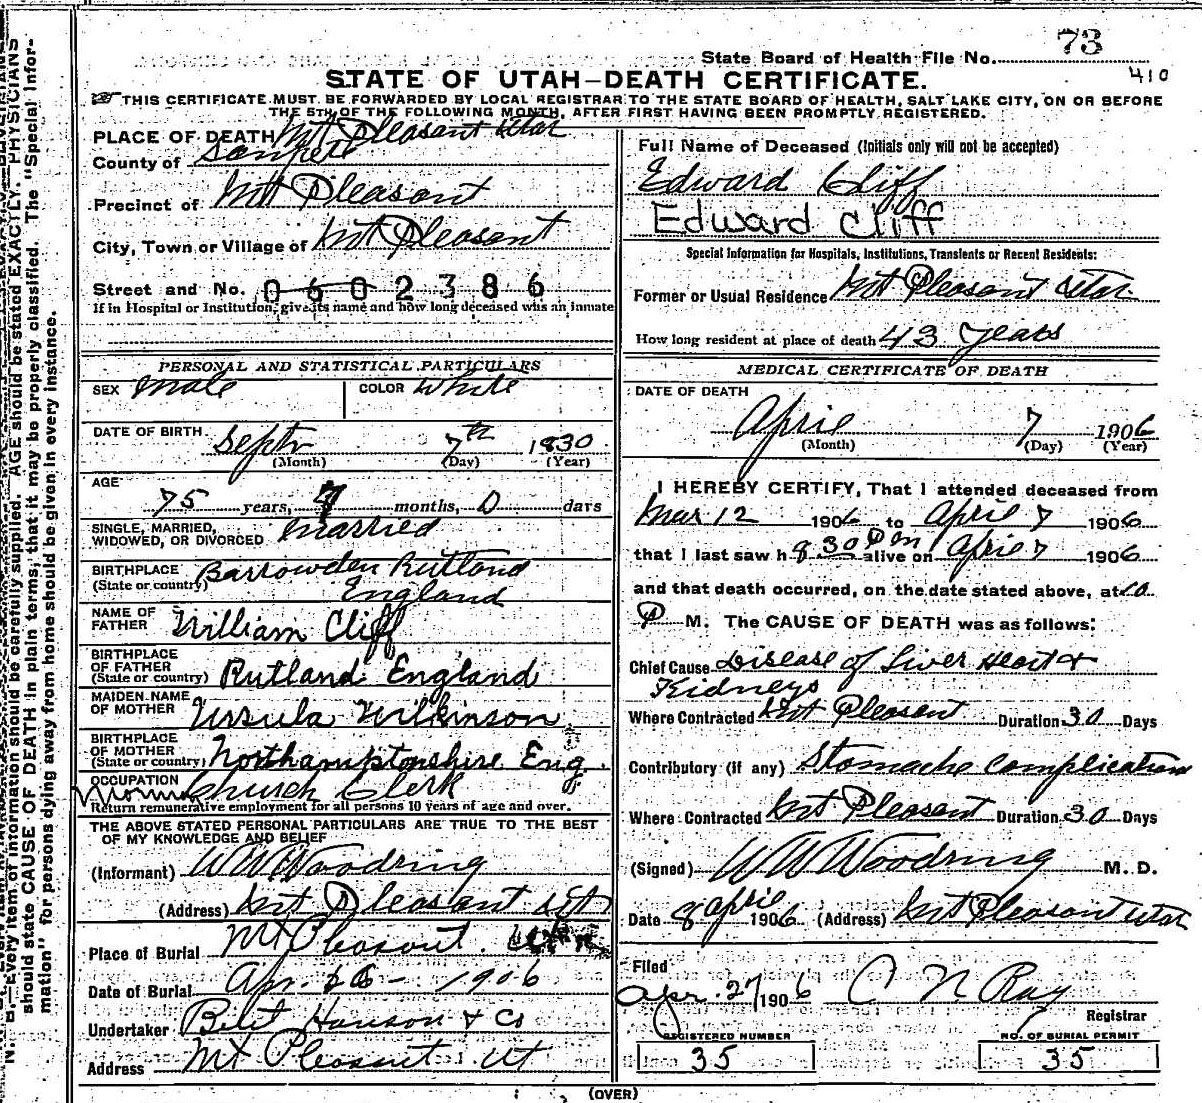 73
State Board of Health File No.
410
STATE OF UTAH—DEATH CERTIFICATE.
THIS CERTIFICATE MUST BE FORWARDED BY LOCAL REGISTRAR TO THE STATE BOARD OF HEALTH, SALT LAKE CITY, ON OR BEFORE
THE 5TH OF THE FOLLOWING MONTH, AFTER FIRST HAVING BEEN PROMPTLY REGISTERED.
PLACE OF DEATH Mt Pleasant Utah
County of Sanpete
Precinct of Mt Pleasant
City, Town or Village of Mt Pleasant
Street and No. 0602386
If in Hospital or Institution, give its name and how long deceased was an inmate
PERSONAL AND STATISTICAL PARTICULARS
SEX male COLOR White
DATE OF BIRTH Septr 7th 1830
(Month) (Day) (Year)
AGE
75 years, 7 months, 0 days
SINGLE, MARRIED,
WIDOWED, OR DIVORCED married
BIRTHPLACE Barrowden Rutland
(State or country) England
NAME OF
FATHER William Cliff
BIRTHPLACE
OF FATHER
(State or country) Rutland England
MAIDEN NAME
OF MOTHER Ursula Wilkinson
BIRTHPLACE
OF MOTHER
(State or country) Northamptonshire Eng.
OCCUPATION Church Clerk
Return remunerative employment for all persons 10 years of age and over.
THE ABOVE STATED PERSONAL PARTICULARS ARE TRUE TO THE BEST
OF MY KNOWLEDGE AND BELIEF
(Informant) W W Woodring
(Address) Mt Pleasant Ut
Place of Burial Mt Pleasant.
Date of Burial Apr. 1906
Undertaker Hanson & Co
Address Mt Pleasant Ut
Full Name of Deceased (Initials only will not be accepted)
Edward Cliff
Edward Cliff
Special Information for Hospitals, Institutions, Transients or Recent Residents:
Former or Usual Residence Mt Pleasant Utah
How long resident at place of death 43 years
MEDICAL CERTIFICATE OF DEATH
DATE OF DEATH
April 7 1906
(Month) (Day) (Year)
I HEREBY CERTIFY, That I attended deceased from
Mar 12 1906 to April 7 1906
that I last saw h 8 30 P m alive on April 7 1906
and that death occurred, on the date stated above, at 10
P M. The CAUSE OF DEATH was as follows:
Chief Cause Disease of Liver Heart &
Kidneys
Where Contracted Mt Pleasant Duration 30 Days
Contributory (if any) Stomache Complication
Where Contracted Mt Pleasant Duration 30 Days
(Signed) W W Woodring M. D.
Date 8 april 1906 (Address) Mt Pleasant Utah
Filed
Apr. 27 1906 C N Ray
Registrar
REGISTERED NUMBER NO. OF BURIAL PERMIT
35 35
(OVER)
N. B.—Every item of information should be carefully supplied. AGE should be stated EXACTLY. PHYSICIANS
should state CAUSE OF DEATH in plain terms, that it may be properly classified. The "Special Infor-
mation" for persons dying away from home should be given in every instance.